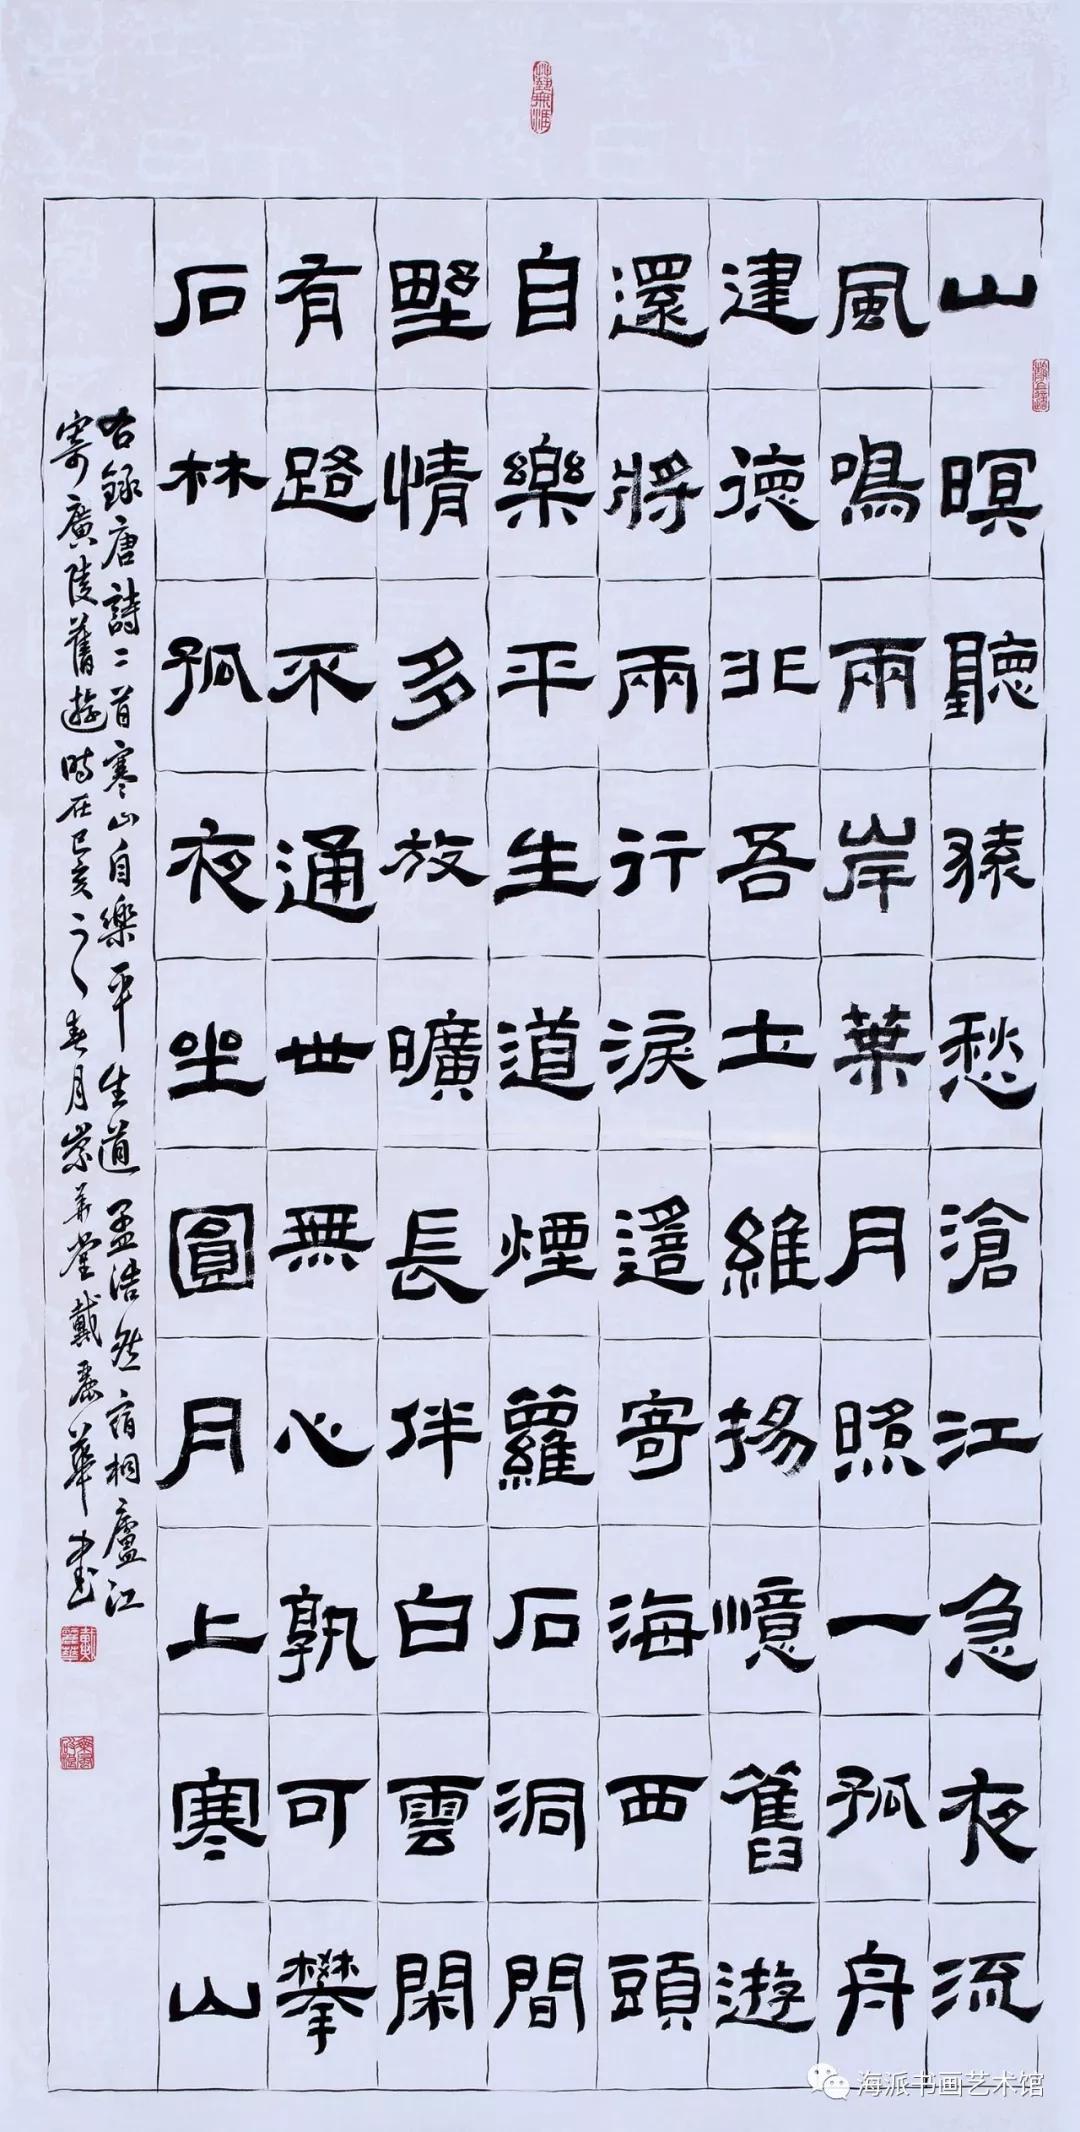 山暝聽猿愁滄江急夜流
風鳴兩岸葉月照一孤舟
建德非吾土維揚憶舊遊
還將兩行淚遥寄海西頭
自樂平生道煙蘿石洞間
野情多放曠長伴白雲閑
有路不通世無心孰可攀
石林孤夜坐圓月上寒山
右錄唐詩二首寒山自樂平生道孟浩然宿桐廬江
寄廣陵舊遊時在己亥之春月崇堂戴麗華書
海派书画艺术馆